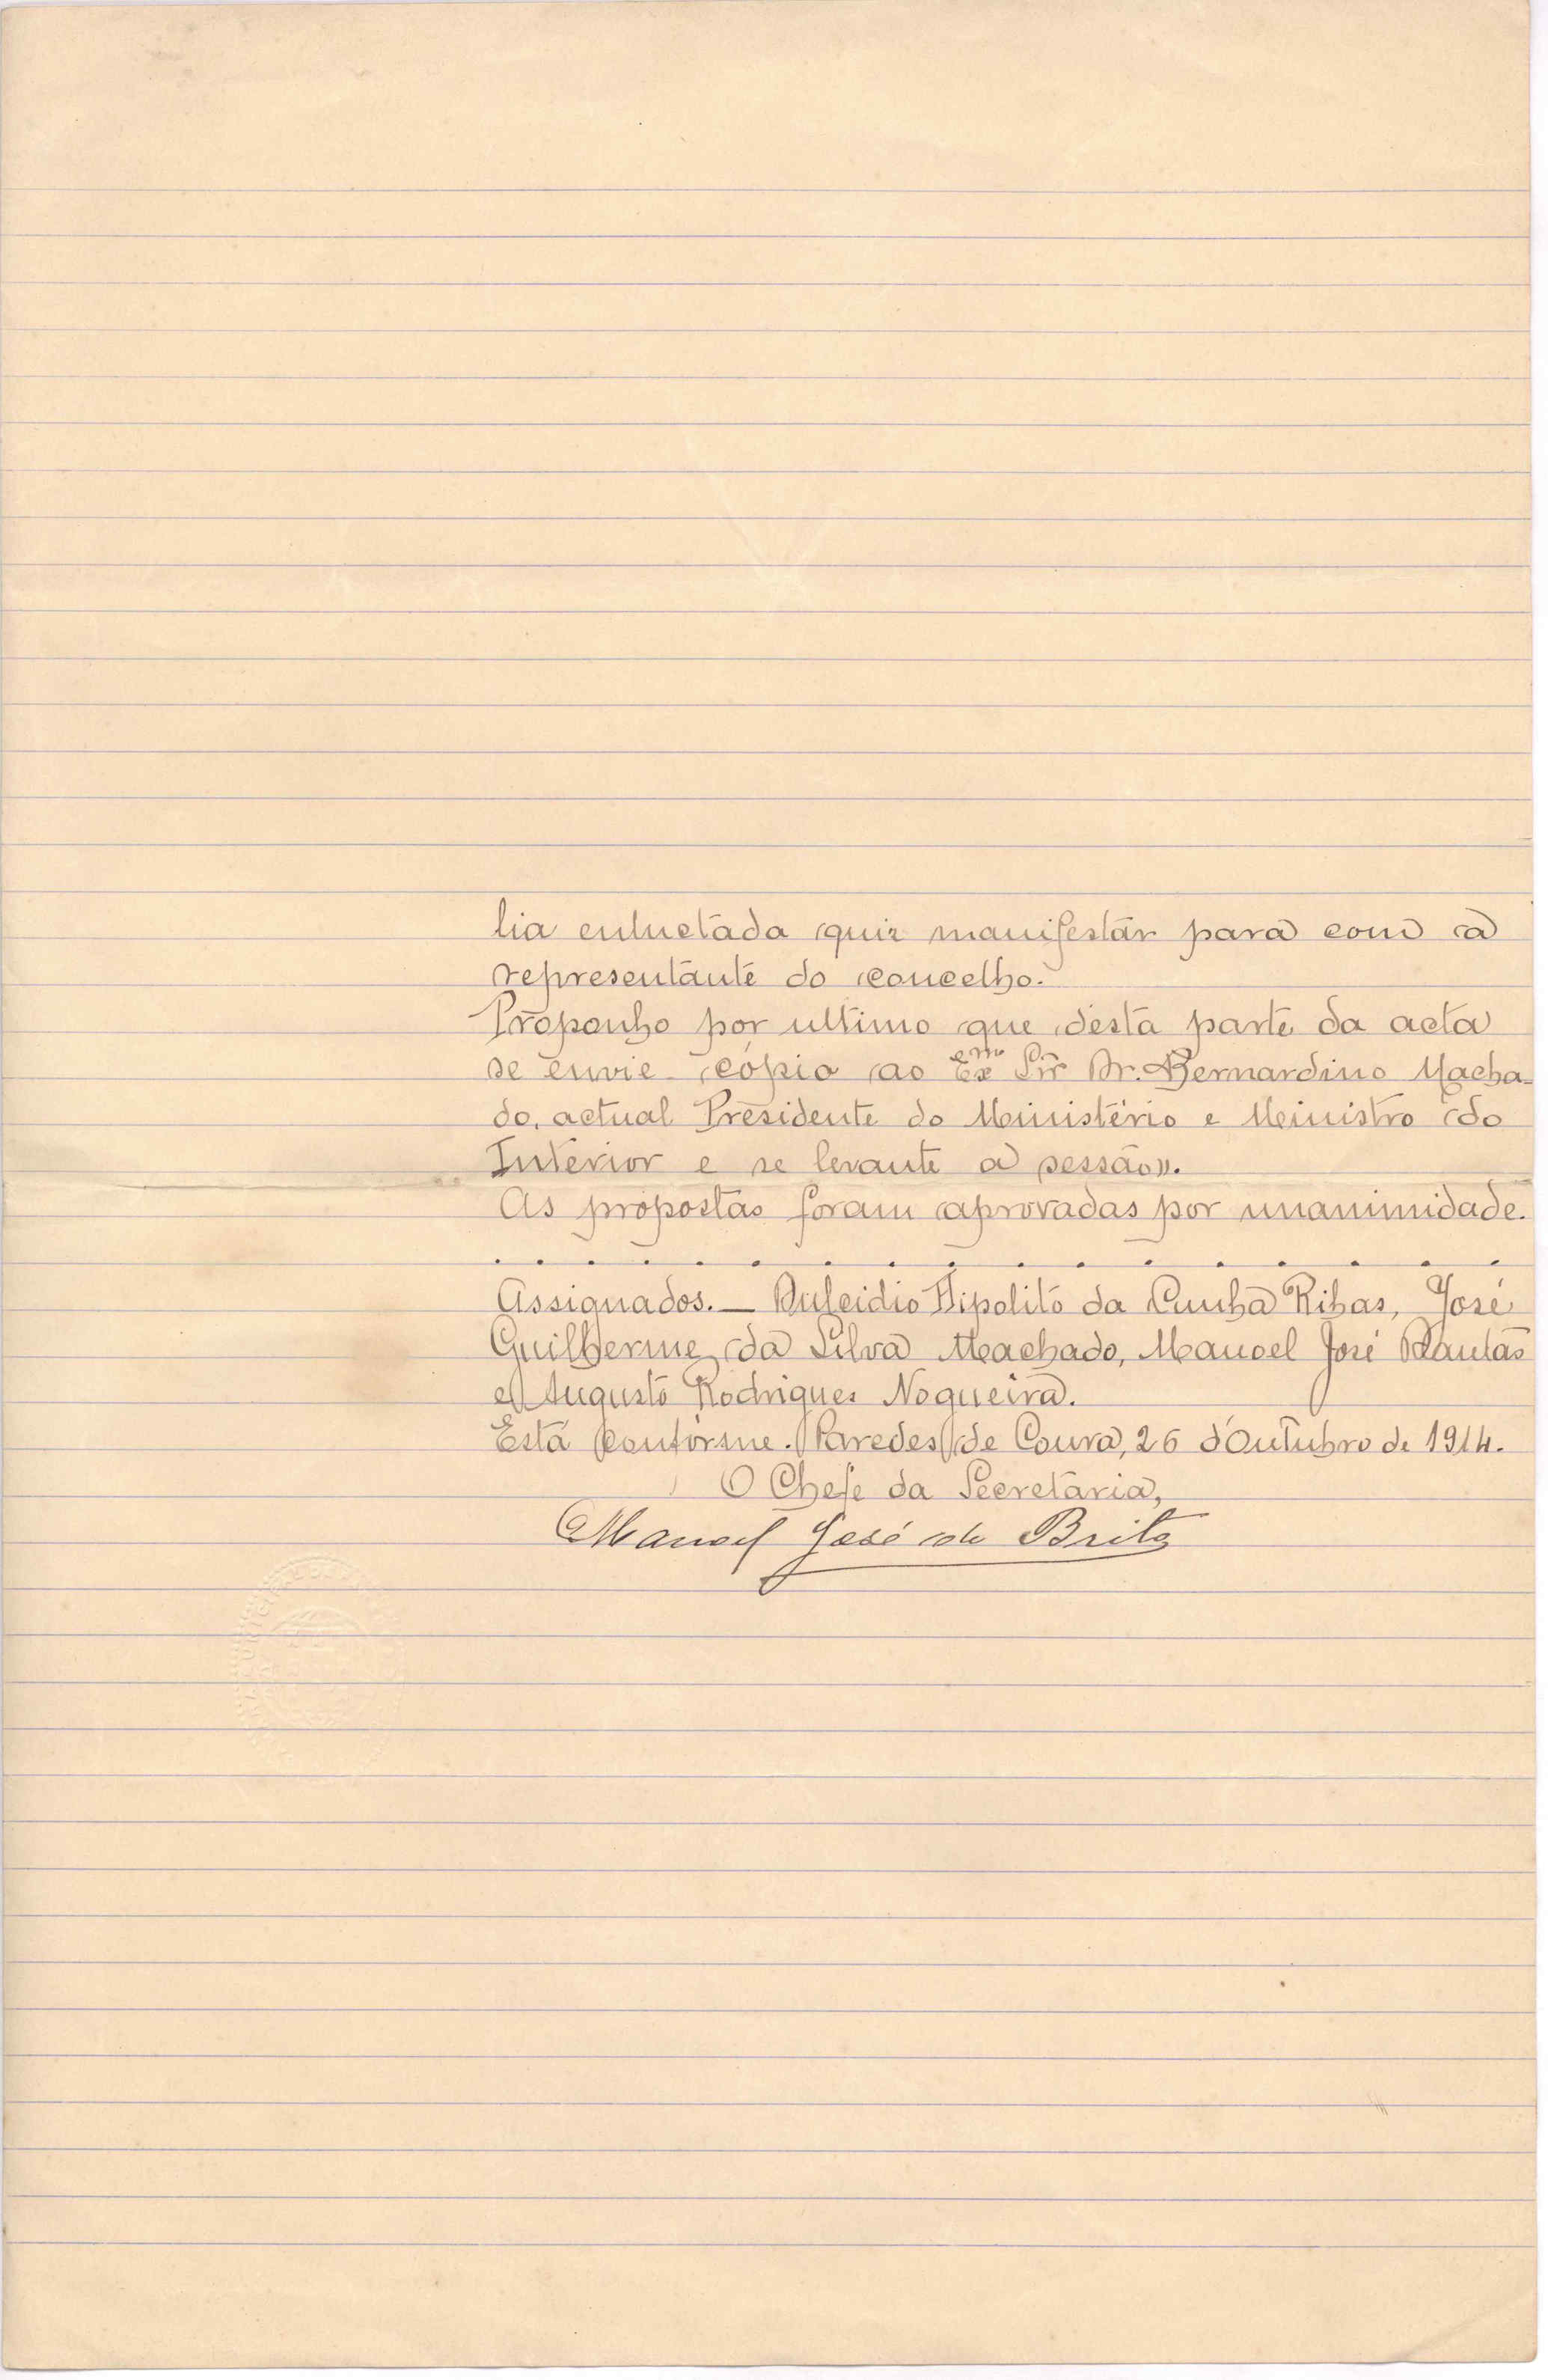 lia enluctada quis manifestar para com a
representante do concelho.
Proponho por ultimo que desta parte da acta
se envie cópia ao Exemo Snr Dr. Bernardino Macha-
do, actual Presidente do Ministério e Ministro do
Interior e se levante a sessão».
As propostas foram aprovadas por unanimidade.
. . . . . . . . . . . . . . . . .
Assignados. — Dulcidio Hipolito da Cunha Ribas, José
Guilherme da Silva Machado, Manoel José Dantas
e Augusto Rodrigues Nogueira.
Está conforme. Paredes de Coura, 26 d'Outubro de 1914.
O Chefe da Secretaria,
Manoel José de Brito